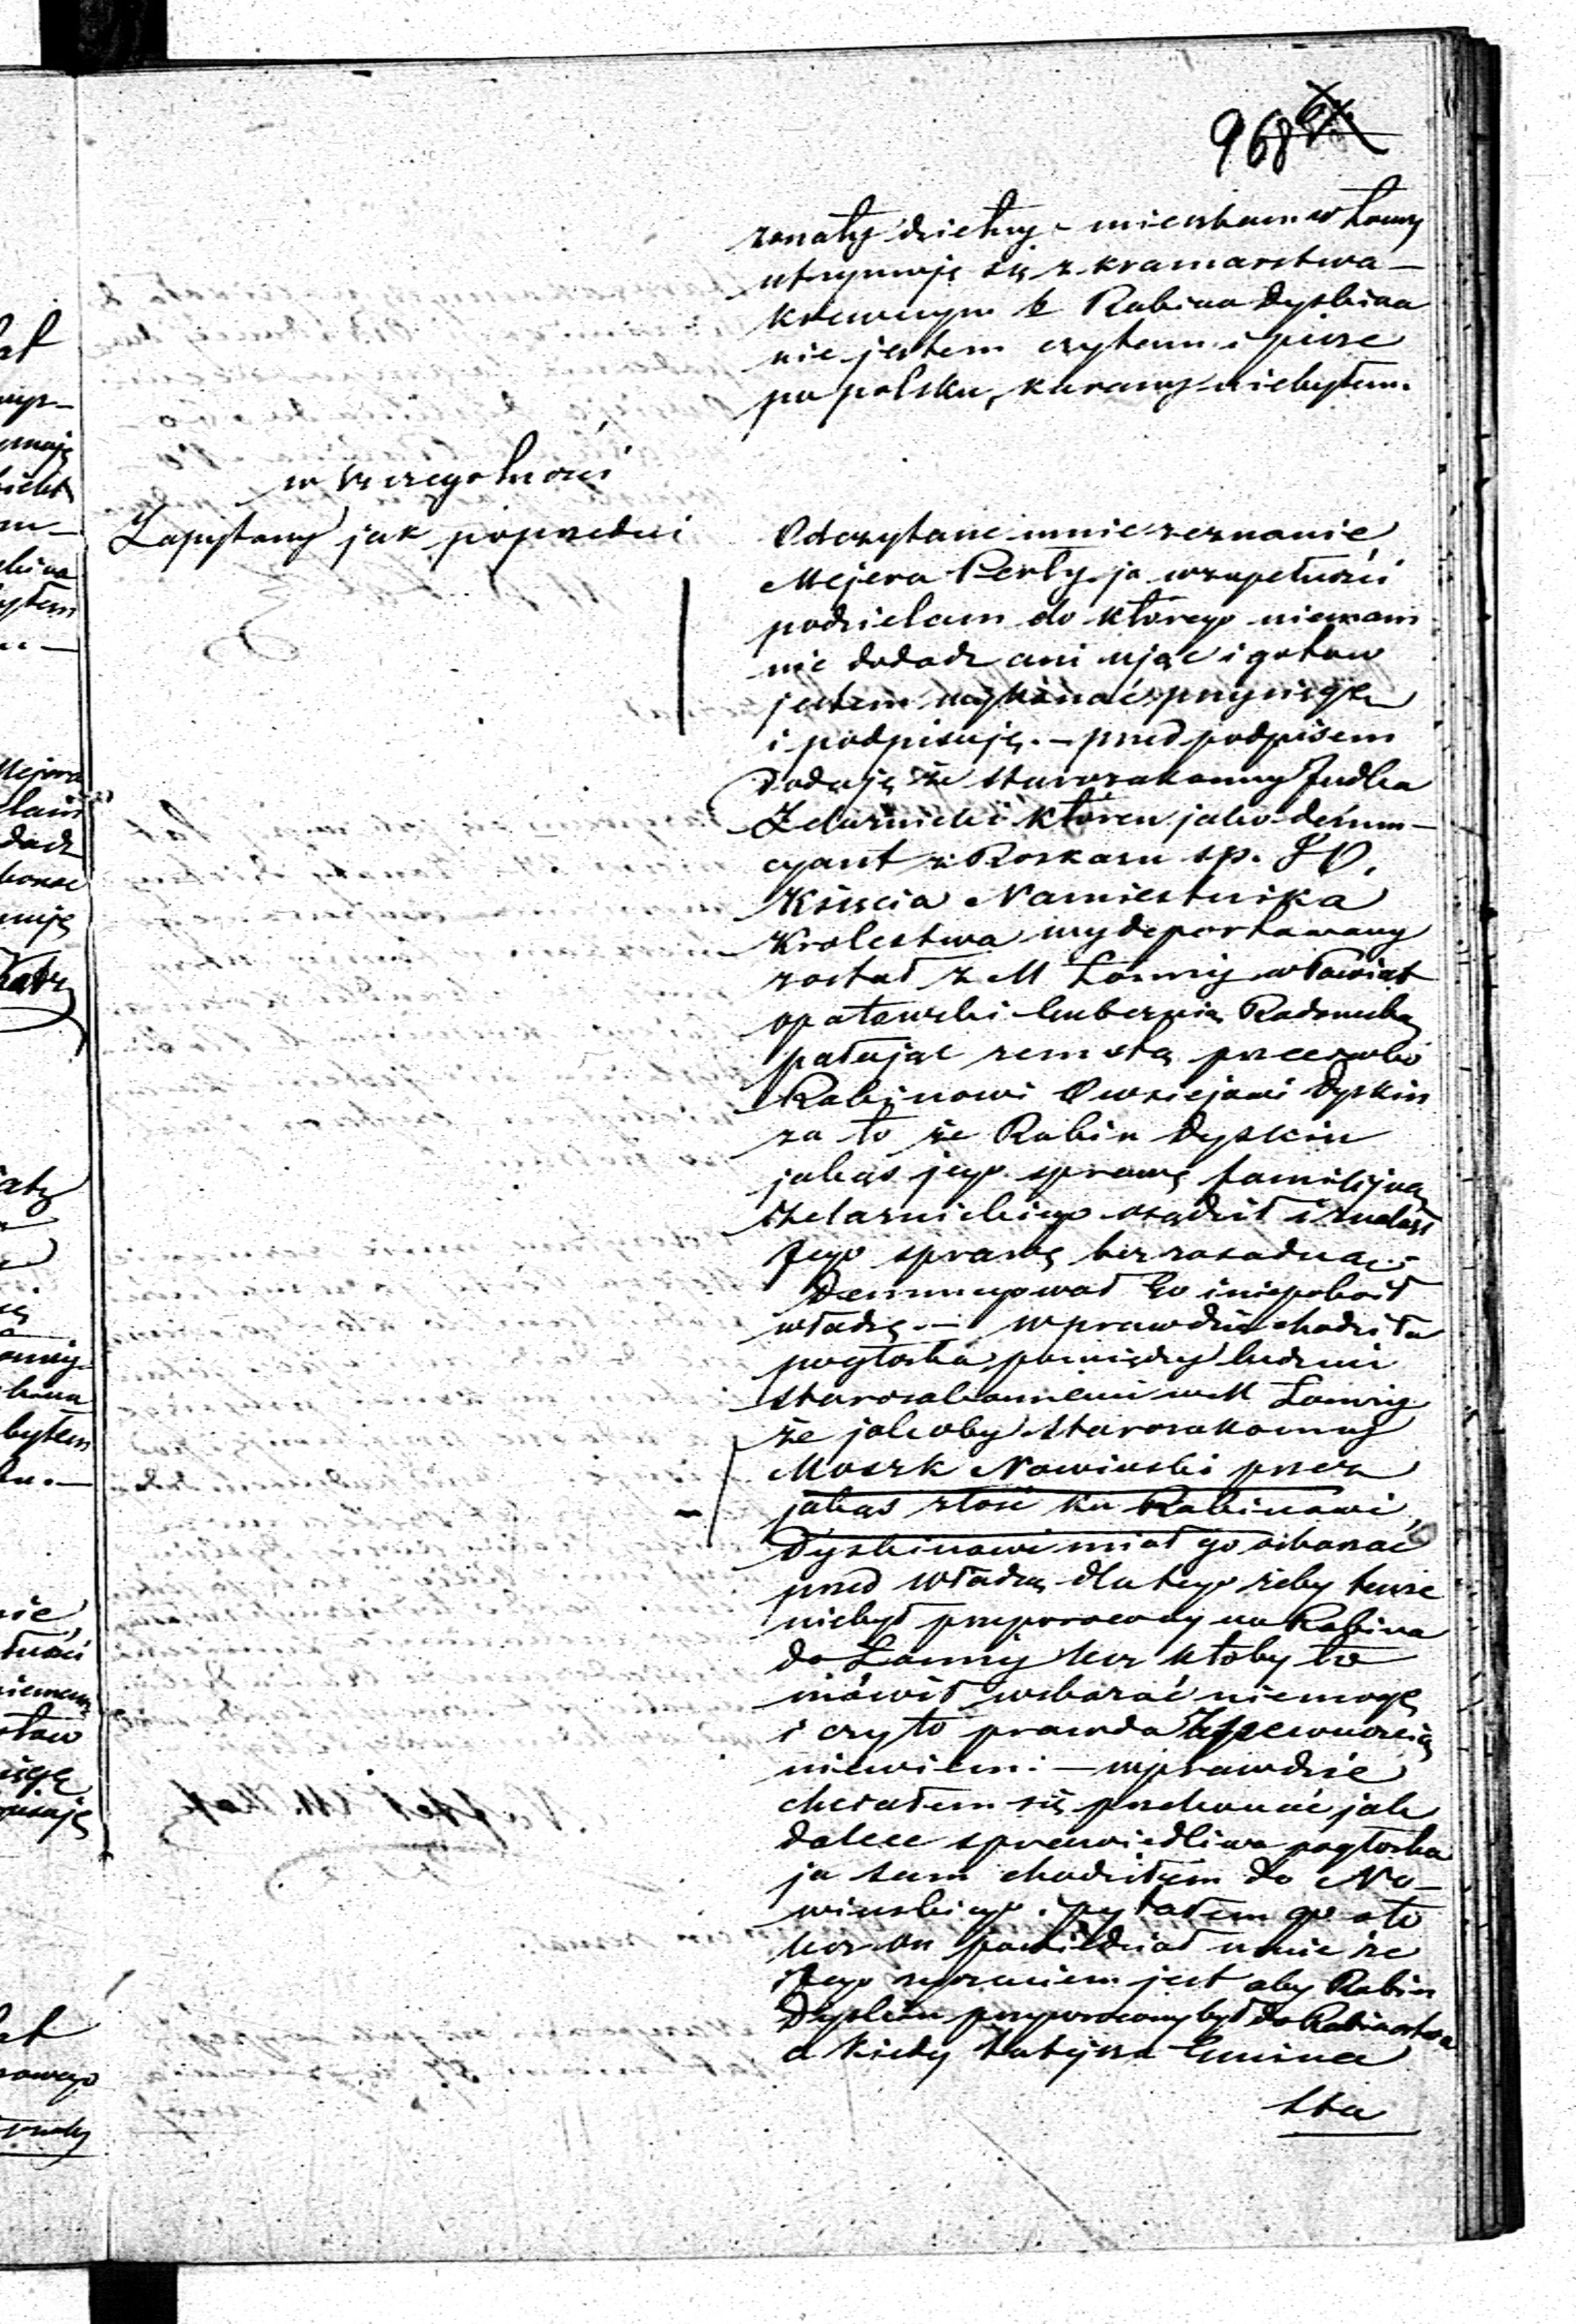 968
żonaty dzietny – mieszkam w Łomży
utrzymuję się z kramarstwa –
krewnym Rabina Dyskina
nie jestem czytam i pisze
po polsku, karany niebyłem.
w szczegolności
Zapytany jak poprzedni
Odczytane mnie zeznanie
Mejera Perły ja wzupełności
podzielam do którego niemam
nic dodadz ani ująć i gotow
jestem wykonać przysięgę
i podpisuję. – przed podpisem
Dodaję że starozakonny Judka
Zelaznicki któren jako denun-
cyant z Roskazu sp. JO.
Księcia Namiestnika
Krolestwa wydeportowany
został z M Łomży w Powiat
opatowski Gubernią Radomską
pałając zemstą przeciwko
Rabinowi Owsiejowi Dyskin
za to że Rabin Dyskin
jakąś jego sprawę familijną
Żelaznickiego osądził i znalazł
Jego sprawę bezzasadną
Denuncyował Go i niepokoił
władzę. – wprawdzie chodziła
pogłoska pomiędzy ludzmi
starozakonnemi w M Łomży
że jakoby starozakonny
Moszk Nowinski przez
jakąś złość ku Rabinowi
Dyskinowi miał go oskarzać
przed władzą dla tego żeby tenże
niebył przywrocony na Rabina
do Łomży lecz ktoby to
mówił wskazać niemogę
i czy to prawda z pewnoscią
niewiem. – wprawdzie
chciałem się przekonać jak
dalece sprawiedliwa pogłoska
ja sam chodziłem do No-
winskiego i pytałem go o to
lecz on powiedział mnie że
Jego życzeniem jest aby Rabin
Dyskin przywrocony był do Rabinostwa
a kiedy tutejsza Gmina
sta